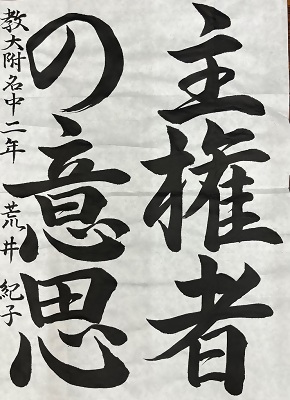 主権者
の意思
教大附名中二年 荒井 紀子